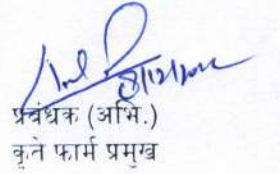 प्रबंधक (अभि.)
कृते फार्म प्रमुख